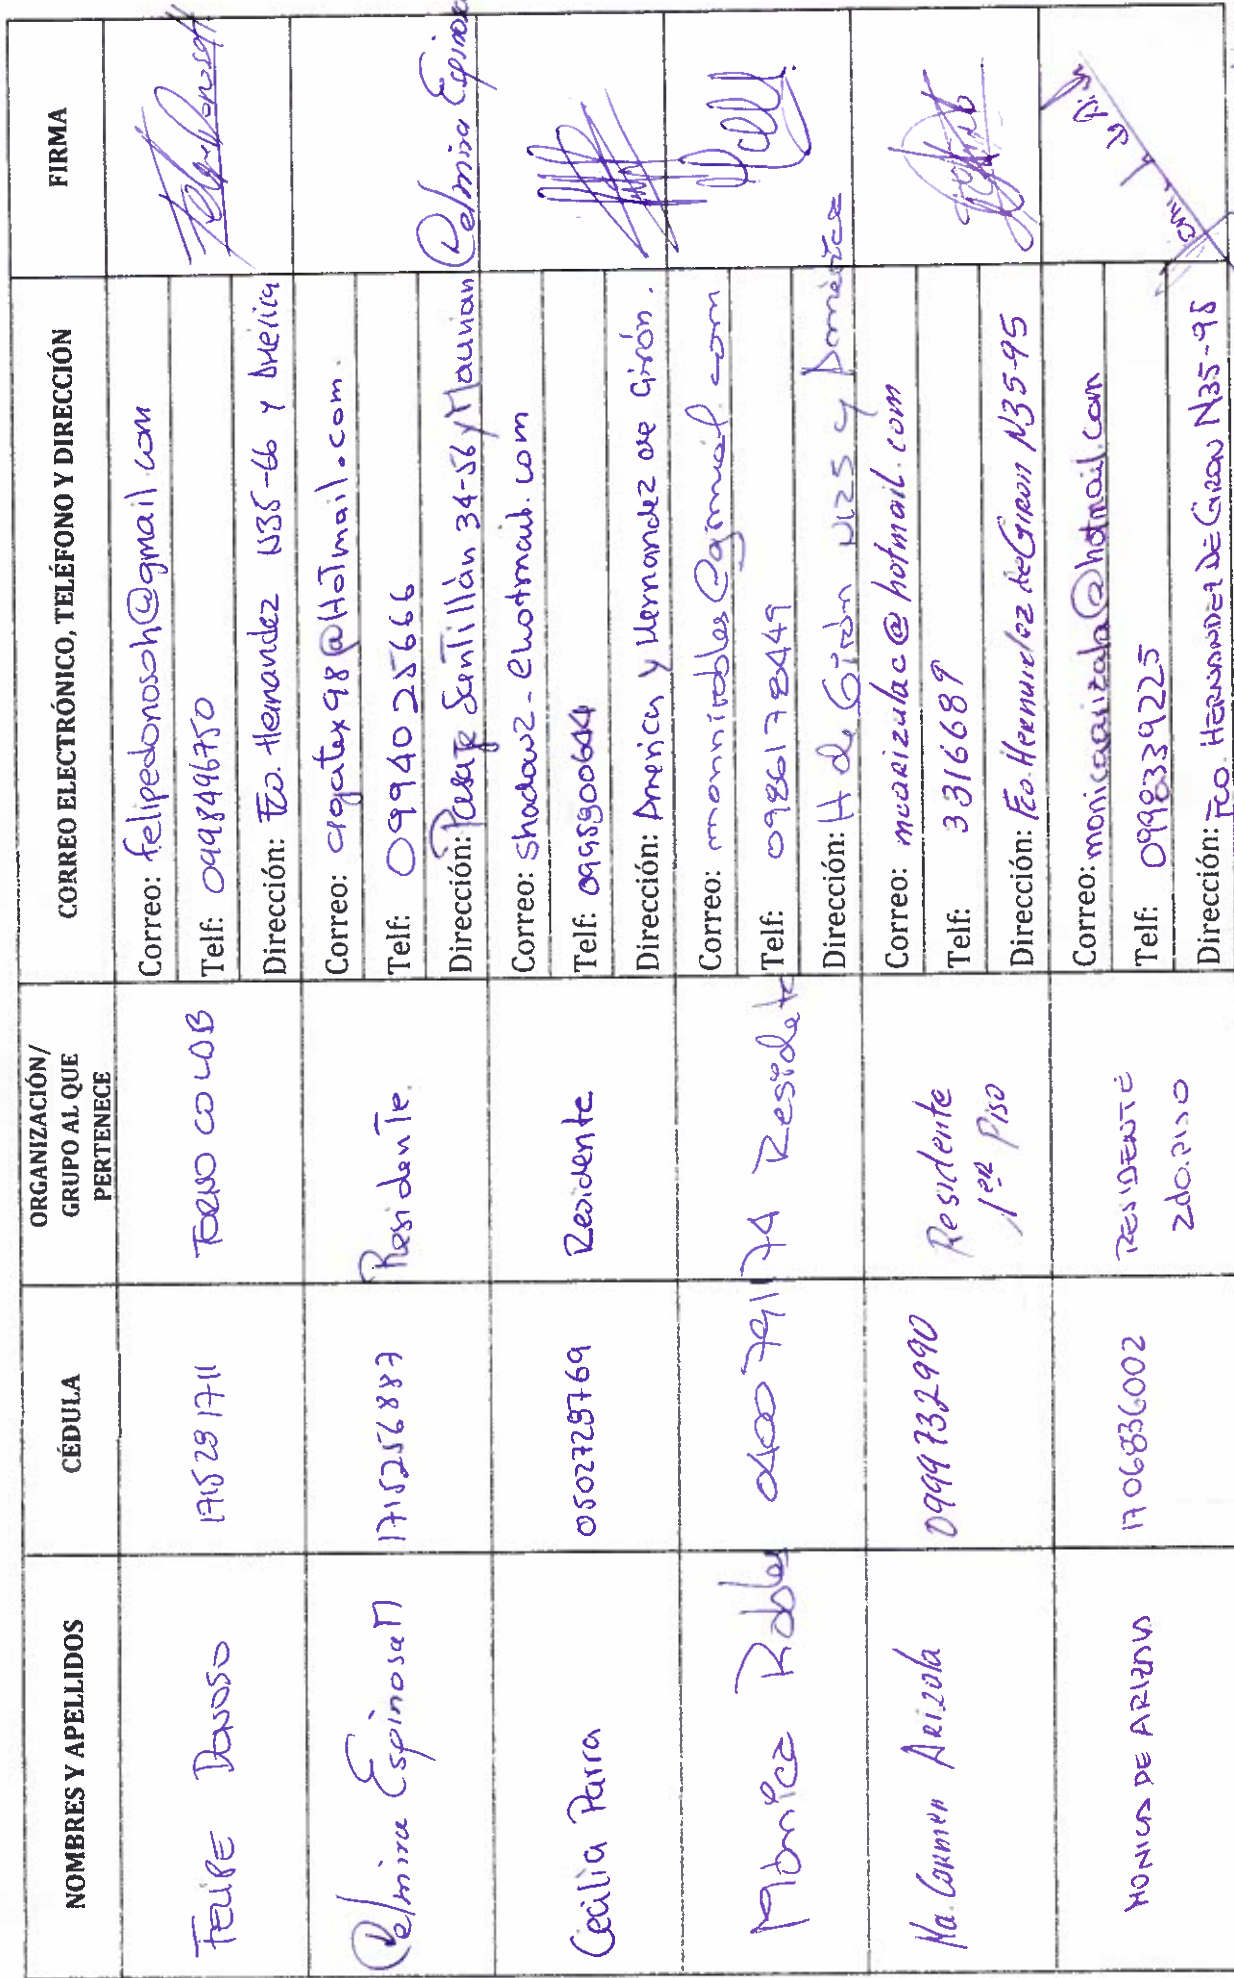 NOMBRES Y APELLIDOS CÉDULA ORGANIZACIÓN/ GRUPO AL QUE PERTENECE CORREO ELECTRÓNICO, TELÉFONO Y DIRECCIÓN FIRMA
FELIPE DONOSO 1715291711 TORNO COLOB
Correo: felipedonosoh@gmail.com
Telf: 0998496750
Dirección: Fco. Hernandez N35-66 y América
Delmira Espinosa M 1715256887 Residente.
Correo: agatax98@Hotmail.com.
Telf: 0994025666
Dirección: Pasaje Santillán 34-56 y Maurian
Delmira Espinosa
Cecilia Parra 0502729769 Residente
Correo: shadow2-@hotmail.com
Telf: 0995900644
Dirección: America y Hernandez de Girón.
Mónica Robles 0400791174 Residente
Correo: monnirobles@gmail.com
Telf: 0986178449
Dirección: H de Girón N125 y América
Ma. Carmen Arizala 0999732990 Residente
1er Piso
Correo: mcarizalac@hotmail.com
Telf: 3316689
Dirección: Fco. Hernandez de Giron N35-95
MONICA DE ARIZALA 1706836002 RESIDENTE
2do. PISO
Correo: monicaarizala@hotmail.com
Telf: 0998339225
Dirección: Fco. HERNANDEZ DE GIRON N35-95